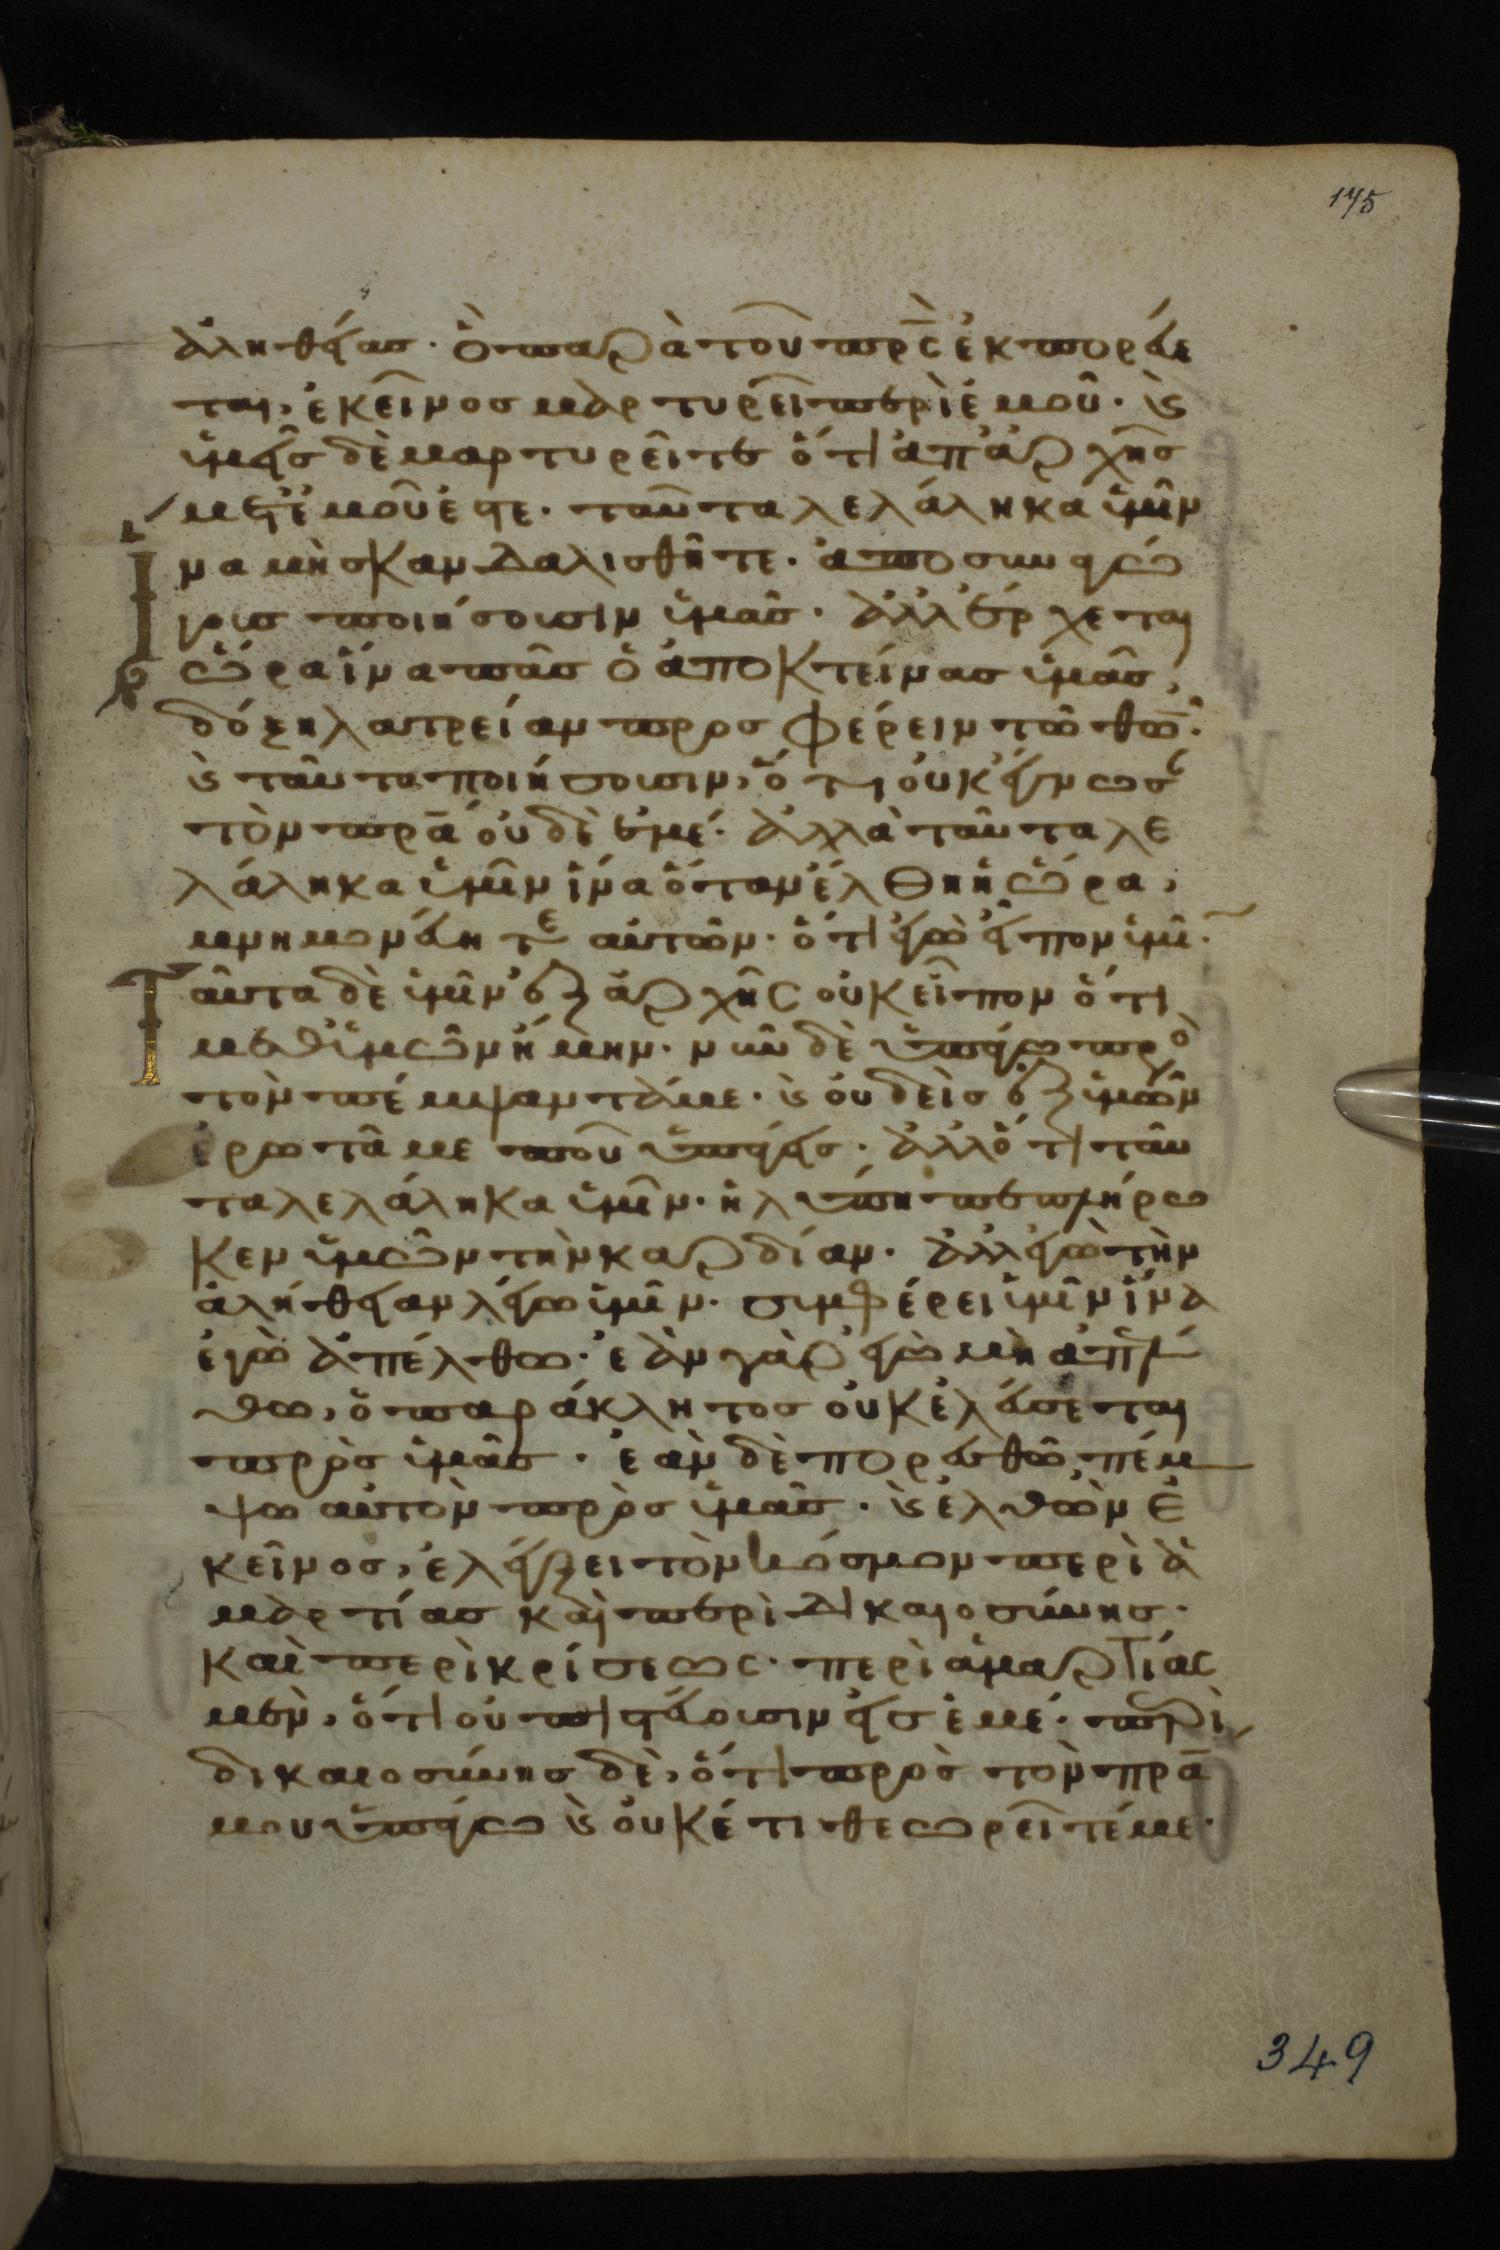 175
ἀληθείας· ὃ παρὰ τοῦ πρ̅ς ἐκπορεύε
ται, ἐκεῖνος μαρτυρεῖ περὶ ἐμοῦ· ϗ
ὑμεῖς δὲ μαρτυρεῖτε ὅτι ἀπ' ἀρχῆς
μετ' ἐμοῦ ἐστε· ταῦτα λελάληκα ὑμῖν
ἵνα μὴ σκανδαλισθῆτε· ἀποσυναγώ
γους ποιήσουσιν ὑμᾶς· ἀλλ' ἔρχεται
ὥρα ἵνα πᾶς ὁ ἀποκτείνας ὑμᾶς,
δόξῃ λατρείαν προσφέρειν τῶ θω̅·
ϗ ταῦτα ποιήσουσιν, ὅτι οὐκ ἔγνωσ
τὸν πρα̅ οὐδὲ ἐμέ· ἀλλὰ ταῦτα λε
λάληκα ὑμῖν ἵνα ὅταν ἔλθη ἡ ὥρα,
μνημονεύητε αὐτῶν· ὅτι ἐγὼ εἶπον ὑμῖ·
Ταῦτα δὲ ὑμῖν ἐξ ἀρχῆς οὐκ εἶπον ὅτι
μεθ' ὑμῶν ἤμην· νῦν δὲ ὑπάγω πρὸ
τὸν πέμψαντά με· ϗ οὐδεὶς ἐξ ὑμῶν
ἐρωτᾶ με ποῦ ὑπάγεις· ἀλλ' ὅτι ταῦ
τα λελάληκα ὑμῖν· ἡ λύπη πεπλήρω
κεν ὑμῶν τὴν καρδίαν· ἀλλ' ἐγὼ τὴν
ἀλήθειαν λέγω ὑμῖν· συμφέρει ὑμῖν ἵνα
ἐγὼ ἀπέλθω· ἐὰν γὰρ ἐγὼ μὴ ἀπέλ
θω, ὁ παράκλητος οὐκ ἐλεύσεται
πρὸς ὑμᾶς· ἐὰν δὲ πορευθῶ, πέμ
ψω αὐτὸν πρὸς ὑμᾶς· ϗ ἐλθὼν ἐ
κεῖνος, ἐλέγξει τὸν κόσμον περὶ ἁ
μαρτίας καὶ περὶ δικαιοσύνης·
καὶ περὶ κρίσεως· περὶ ἁμαρτίας
μὲν, ὅτι οὐ πιστεύουσιν εἰς ἐμέ· περὶ
δικαιοσύνης δὲ, ὅτι πρὸς τὸν πρα̅
μου ὑπάγω ϗ οὐκέτι θεωρεῖτέ με·
349